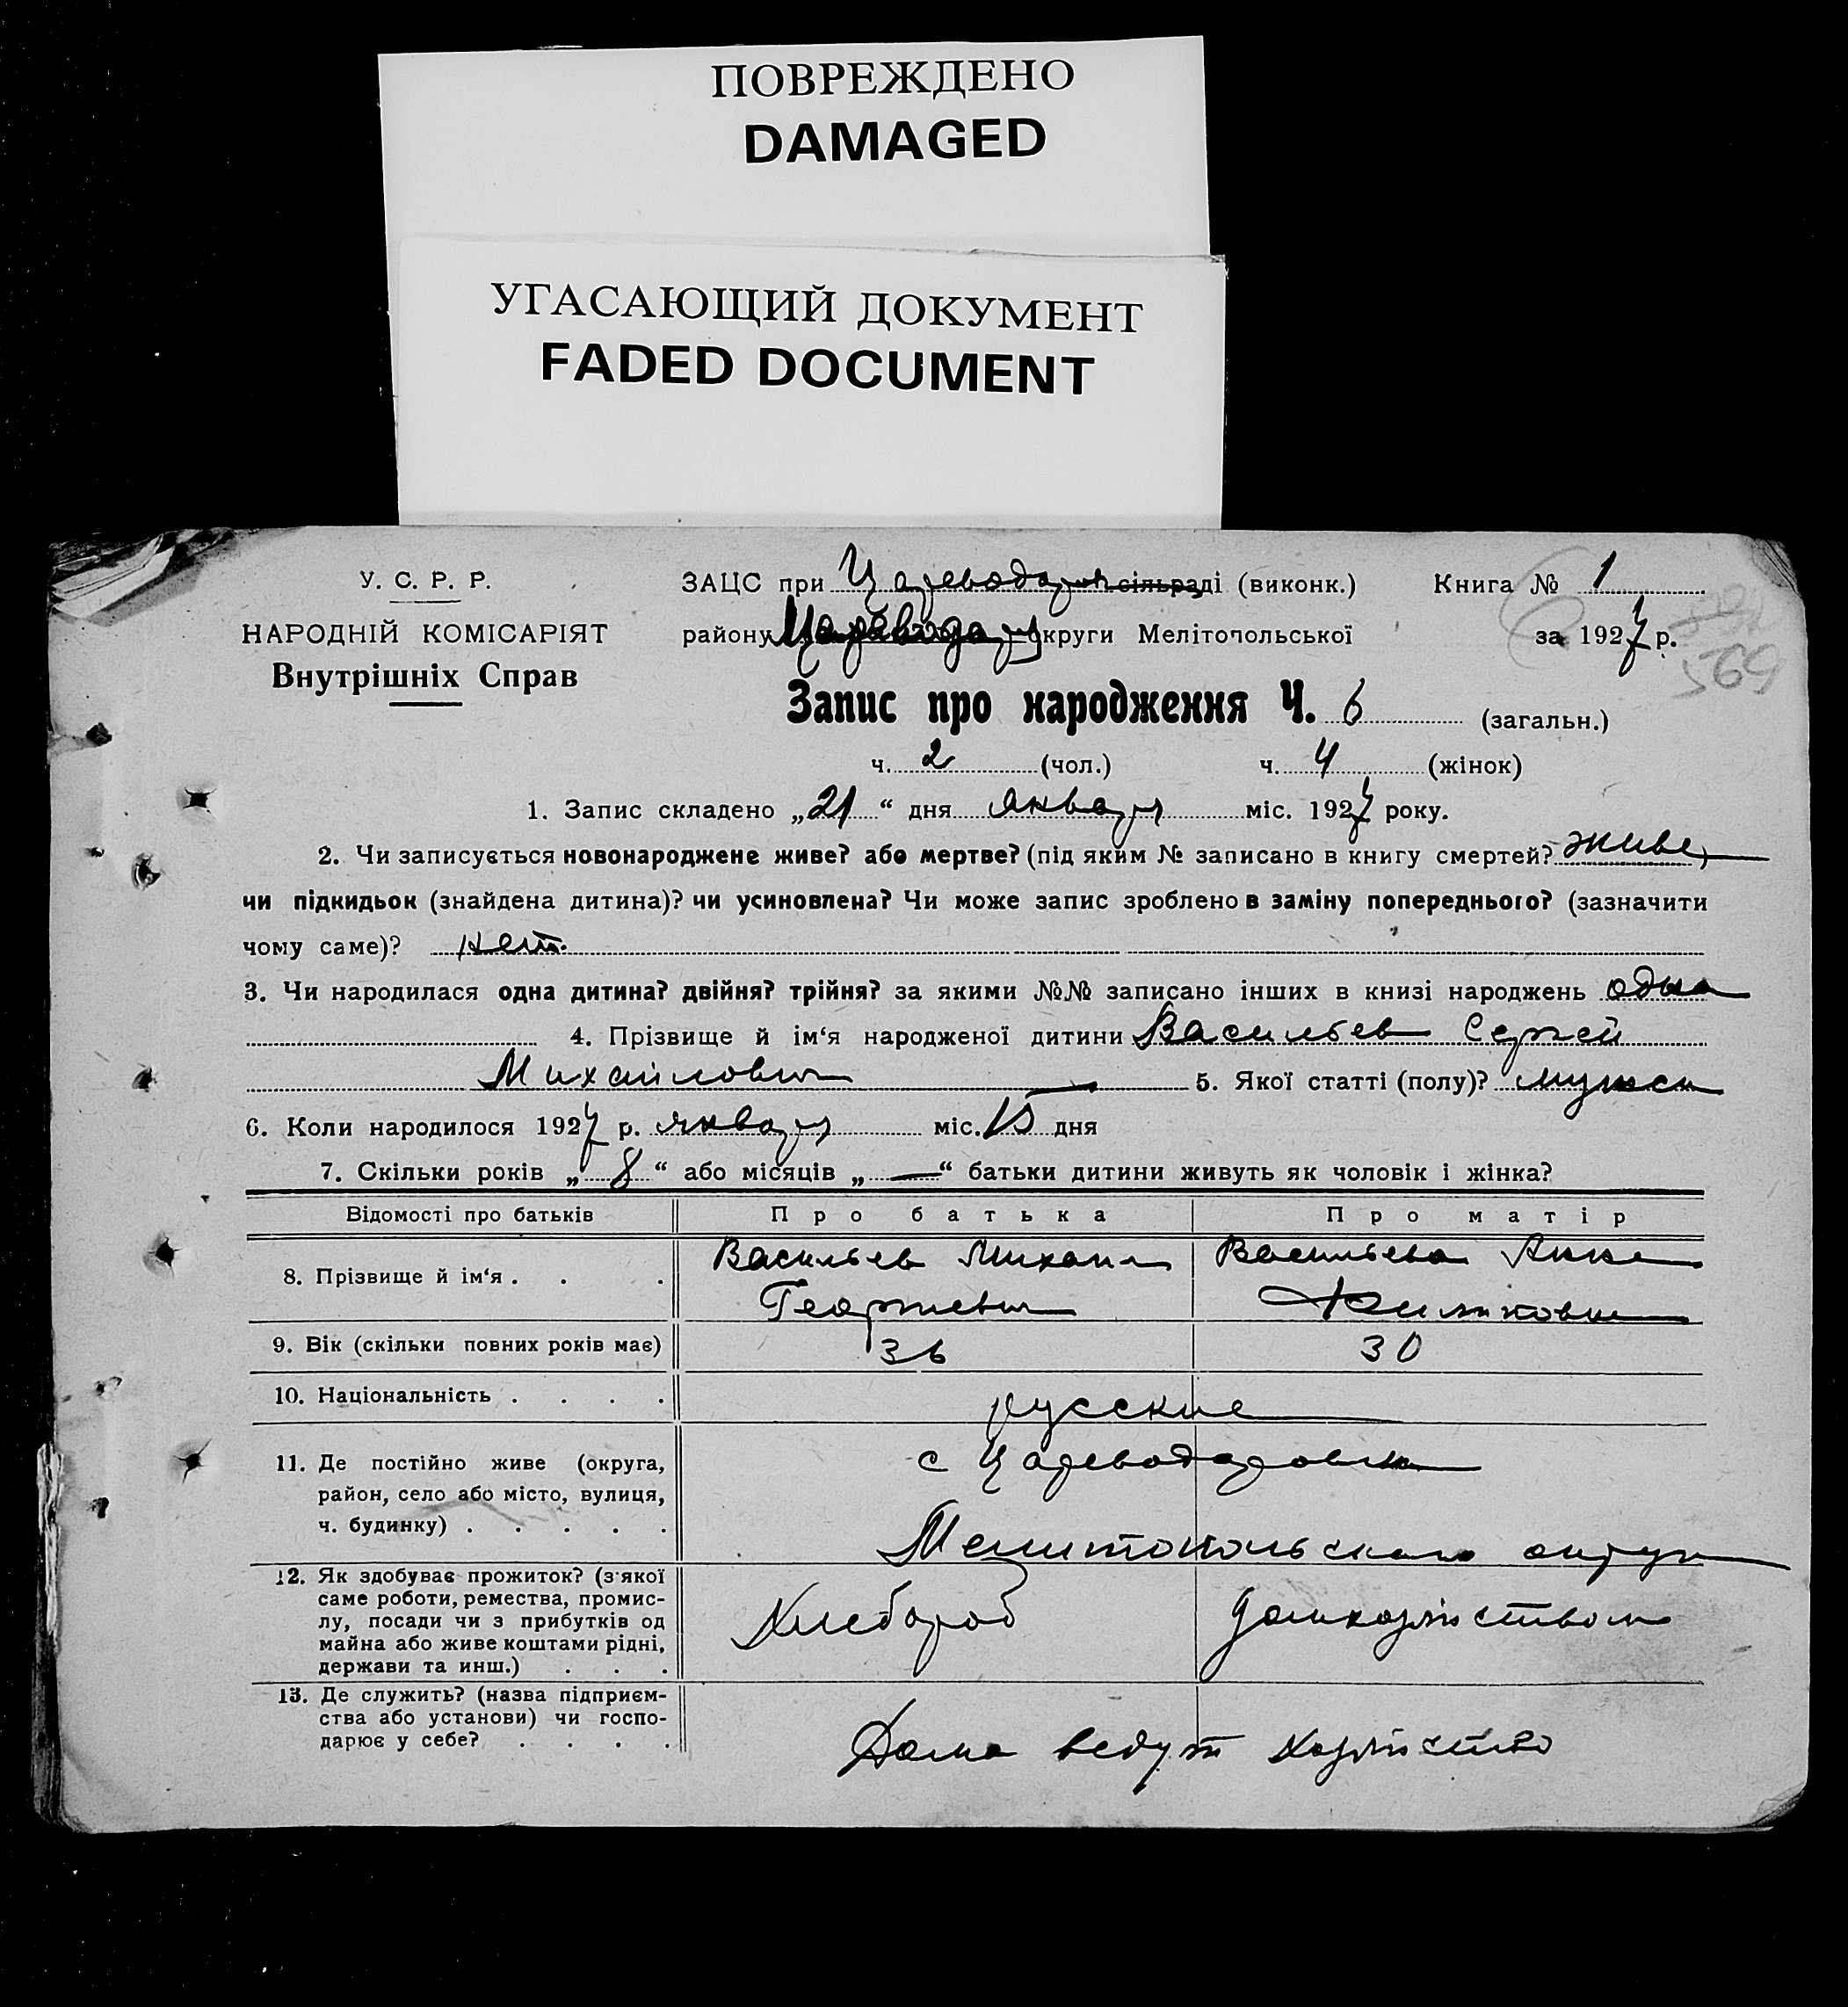 ПОВРЕЖДЕНО
DAMAGED
УГАСАЮЩИЙ ДОКУМЕНТ
FADED DOCUMENT
У. С. Р. Р.
НАРОДНІЙ КОМІСАРІЯТ
Внутрішніх Справ
ЗАЦС при Цареводар сільраді (виконк.) Книга № 1
району Цареводар округи Мелітопольської за 1927 р.
569
Запис про народження Ч. 6 (загальн.)
ч. 2 (чол.) ч. 4 (жінок)
1. Запис складено „21“ дня января міс. 1927 року.
2. Чи записується новонароджене живе? або мертве? (під яким № записано в книгу смертей? живе,
чи підкидьок (знайдена дитина)? чи усиновлена? Чи може запис зроблено в заміну попереднього? (зазначити
чому саме)? нет.
3. Чи народилася одна дитина? двійня? трійня? за якими №№ записано інших в книзі народжень одна
4. Прізвище й ім‘я народженої дитини Васильев Сергей
Михайлович 5. Якої статті (полу)? мужск
6. Коли народилося 1927 р. января міс. 15 дня
7. Скільки років „8“ або місяців „—“ батьки дитини живуть як чоловік і жінка?
Відомості про батьків Про батька Про матір
8. Прізвище й ім‘я . . . Васильев Михаил Васильева Анна
Георгиевич
9. Вік (скільки повних років має) 36 30
10. Національність . . . . русские
11. Де постійно живе (округа, с Цареводаровка
район, село або місто, вулиця,
ч. будинку) . . . . . Мелитопольского округа
12. Як здобуває прожиток? (з якої
саме роботи, ремества, промис-
лу, посади чи з прибутків од Хлебороб Домхозяйством
майна або живе коштами рідні,
держави та инш.) . . .
13. Де служить? (назва підприєм-
ства або установи) чи госпо-
дарює у себе? . . . . Дома ведут хозяйство